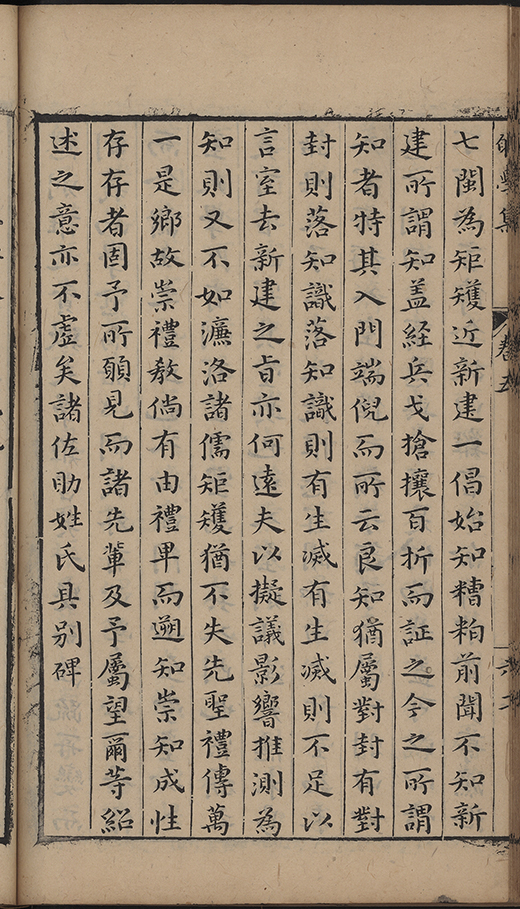 七閩為矩矱近新建一倡始知糟粕前聞不知新
建所謂知盖經兵戈搶攘百折而証之今之所謂
知者特其入門端倪而所云良知猶屬對封有對
封則落知識落知識則有生滅有生滅則不足以
言室去新建之㫖亦何遠夫以擬議影響推測為
知則又不如濂洛諸儒矩矱猶不失先聖禮傳萬
一是鄉故崇禮教倘有由禮畢而遡知崇知成性
存存者固予所願見而諸先軰及予屬望爾等紹
述之意亦不虚矣諸佐助姓氏具别碑